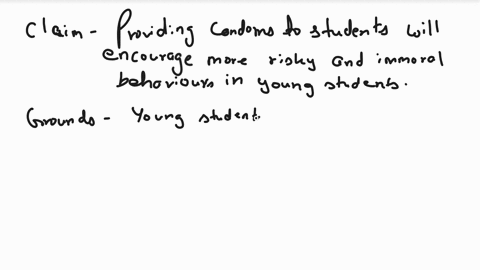 Claim - Providing Condoms to students will
encourage more risky and immoral
behaviours in young students.
Grounds - Young student